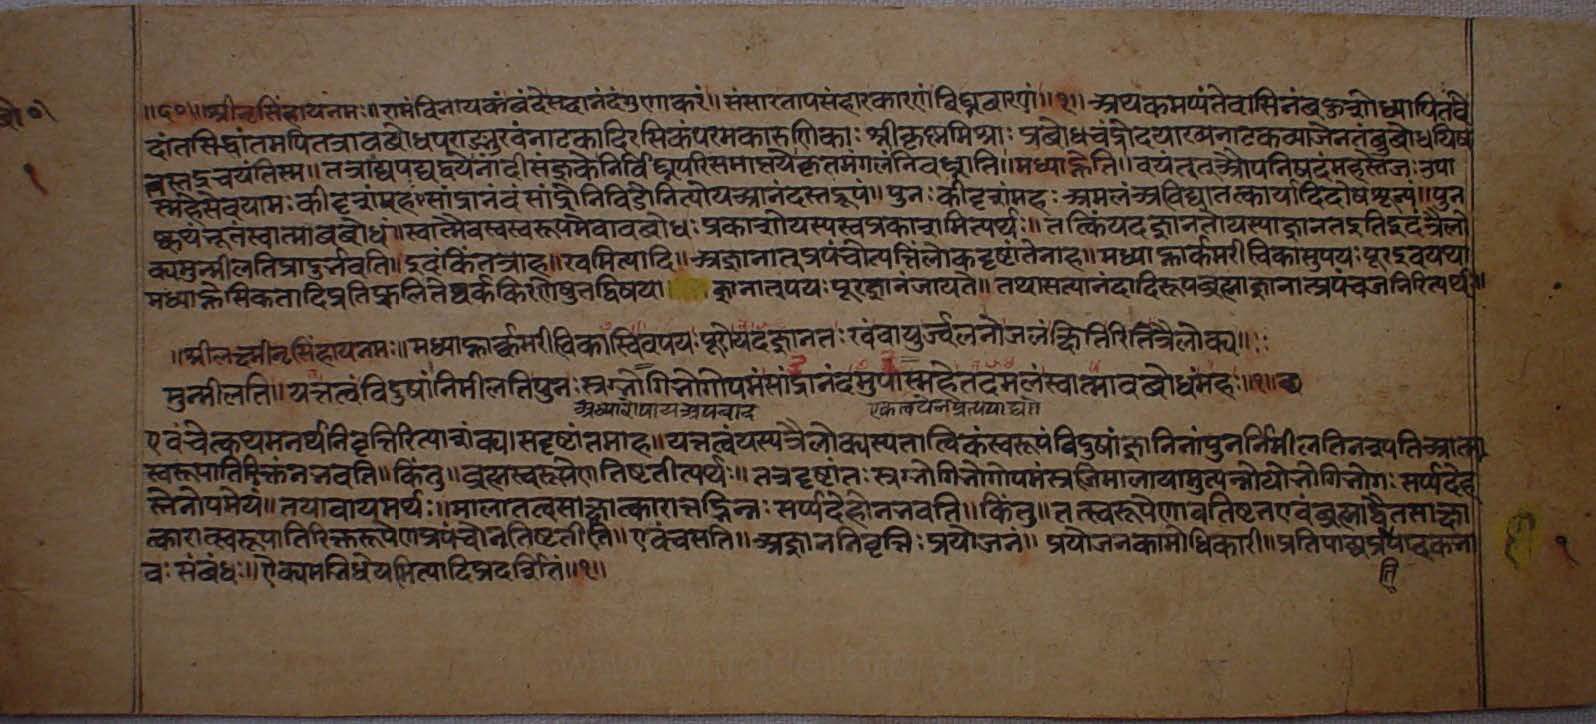 ॥६०॥श्रीनृसिंहायनमः॥रामंविनायकंवंदेसदानंदंगुणाकरं॥संसारतापसंहारकारणंविघ्नवारणं॥१॥अथकमप्यंतेवासिनंबहुशोध्यापितंवे
दांतसिद्धांतमपितत्रावबोधपराङ्मुखंनाटकादिरसिकंपरमकारुणिकाः श्रीकृष्णमिश्राः प्रबोधचंद्रोदयाख्यनाटकव्याजेनतंबुबोधयिष
वस्तद्रचयंतिस्म॥तत्राद्यपद्यद्वयेनांदीसंज्ञकेनिर्विघ्नपरिसमाप्तयेकृतमंगलंनिबध्नाति॥मध्याह्नेति॥वयंतत्औपनिषदंमहस्तेजः उपा
स्महेसेवयामः कीदृशंमहः सांद्रानंदं सांद्रोनिविडोनित्योयआनंदस्तद्रूपं॥पुनः कीदृशंमहः अमलंअविद्यातत्कार्यादिदोषशून्यं॥पुनः
कथंभूतंस्वात्मावबोधं॥स्वात्मैवस्वस्वरूपमेवावबोधः प्रकाशोयस्यस्वप्रकाशमित्यर्थः॥तत्किंयदज्ञानतोयस्याज्ञानतइतिइदंत्रैलो
क्यमुन्मीलतिप्रादुर्भवति॥इदंकिंतत्राह॥खमित्यादि॥अज्ञानात्प्रपंचोत्पत्तिंलोकदृष्टांतेनाह॥मध्याह्नार्कमरीचिकासुपयः पूरइवयथा
मध्याह्नेसिकतादिप्रतिफलितेष्वर्ककिरणेषुतद्विषया ज्ञानात्पयः पूरज्ञानंजायते॥तथासत्यानंदादिरूपब्रह्माज्ञानात्प्रपंचजनिरित्यर्थः॥
॥श्रीलक्ष्मीनृसिंहायनमः॥मध्याह्नार्कमरीचिकास्विवपयः पूरोयदज्ञानतः खंवायुर्ज्वलनोजलंक्षितिरितित्रैलोक्य॥
मुन्मीलति॥यत्तत्वंविदुषांनिमीलतिपुनः स्रग्भोगिभोगोपमंसांद्रानंदमुपास्महेतदमलंस्वात्मावबोधंमहः॥१॥
अध्यारोपायअपवाद
एवंचेत्कथमनर्थनिवृत्तिरित्याशंक्य।सदृष्टांतमाह॥यत्तत्वंयस्यत्रैलोक्यस्यतात्विकंस्वरूपंविदुषांज्ञानिनांपुनर्निमीलतिनश्यतिआत्म
स्वरूपातिरिक्तंनभवति॥किंतु॥ब्रह्मस्वरूपेणतिष्टतीत्यर्थः॥तत्रदृष्टांतः स्रग्भोगिभोगोपमंस्रजिमालायामुत्पन्नोयोभोगिभोगः सर्प्पदेह
स्तेनोपमेयं॥तथाचायमर्थः॥मालातत्वसाक्षात्कारात्तद्भिन्नः सर्प्पदेहोनभवति॥किंतु॥तत्स्वरूपेणावतिष्टतएवंब्रह्माद्वैतसाक्षा
त्कारात्स्वरूपातिरिक्तरूपेणप्रपंचोनतिष्टतीति॥एवंचसति॥अज्ञाननिवृत्तिः प्रयोजनं॥प्रयोजनकामोधिकारी॥प्रतिपाद्यप्रतिपादकभा
वः संबंधः॥ऐक्यमभिधेयमित्यादिप्रदर्शितं॥१॥
ति
१
१